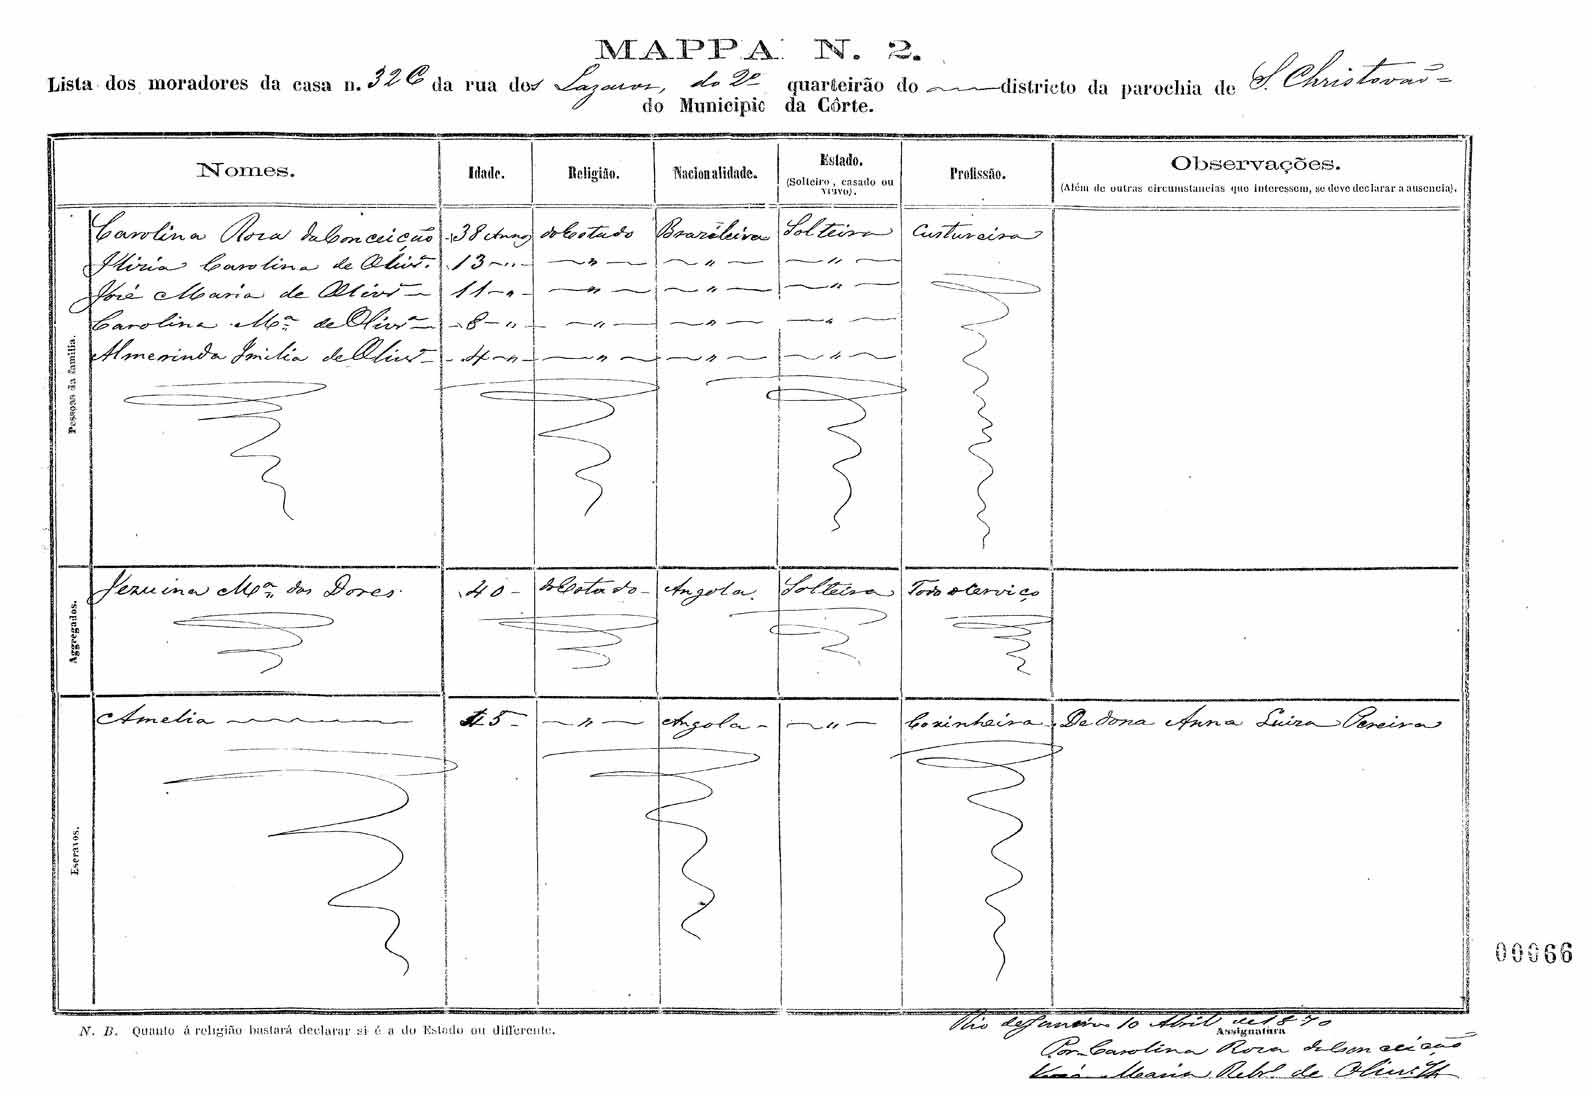 MAPPA N. 2.
Lista dos moradores da casa n. 32 C da rua dos Lazaros, do 2º quarteirão do districto da parochia de S. Christovão
do Municipio da Côrte.
Nomes. Idade. Religião. Nacionalidade. Estado. (Solteiro, casado ou viuvo). Profissão. Observações. (Além de outras circumstancias que interessem, se deve declarar a ausencia).
Pessoas da familia.
Carolina Roza da Conceição 38 Annos do Estado Brazileira Solteira Custureira
Carolina de Olivrª 13 " " " "
José Maria de Olivrª 11 " " " "
Carolina Mª de Olivrª 8 " " " "
Almerinda Imilia de Olivrª 4 " " " "
Aggregados.
Jezuina Mª das Dores 40 do Estado Angola Solteira Todo o serviço
Escravos.
Amelia 45 " Angola " Cozinheira De dona Anna Luiza Pereira
00066
N. B. Quanto á religião bastará declarar si é a do Estado ou differente.
Rio de Janeiro 10 Abril de 1870
Assignatura
Por Carolina Roza da Conceição
José Maria de